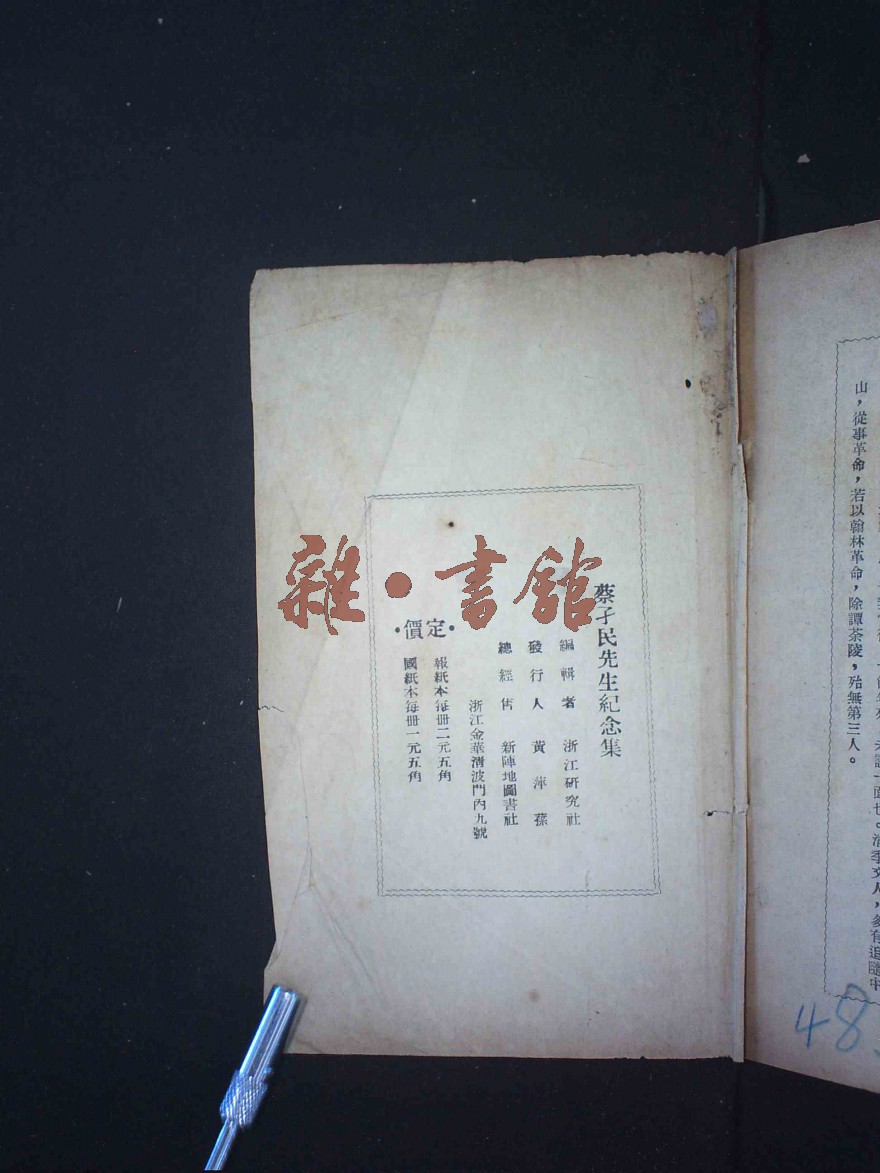 山，從事革命，若以翰林革命，除譚茶陵，殆無第三人。
蔡孑民先生紀念集
編輯者 浙江研究社
發行人 黃萍蓀
總經售 新陣地圖書社
浙江金華清波門內九號
•定價•
報紙本每冊二元五角
國紙本每冊一元五角
雜•書館
48